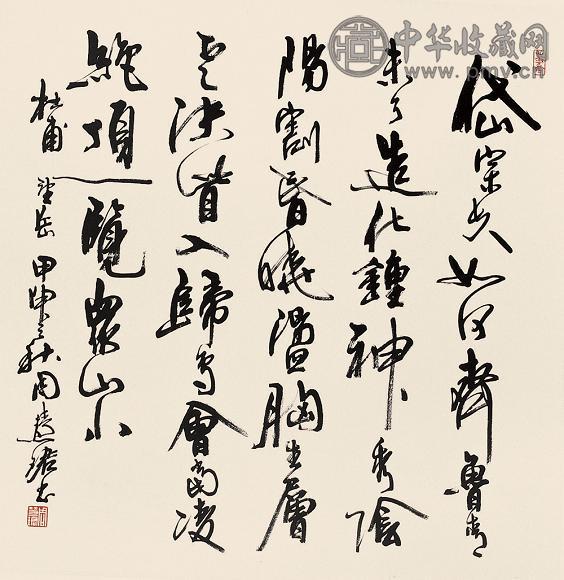 岱宗夫如何齊魯青
未了造化鍾神秀陰
陽割昏曉盪胸生層
云決眥入歸鳥會當凌
絕頂一覽衆山小
杜甫望岳 甲申之秋周慧珺书
中华收藏网
www.pmv.cn